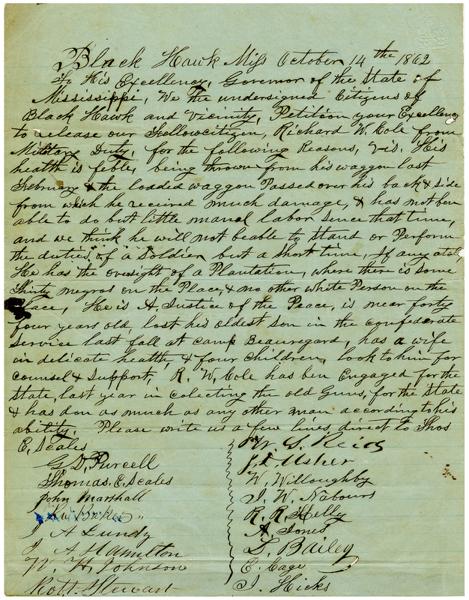 Black Hawk Miss October 14th 1862
To His Excellency, Governor of the State of
Mississippi, We the undersigned Citizens of
Black Hawk and Vicinity, Petition your Excellency
to release our Fellowcitizen, Richard W. Cole from
Military Duty, for the following Reasons, vis. His
health is feble, being thrown from his waggon last
February & the loaded waggon Passed over his back & side
from which he received much damage, & has not ben
able to do but little manel labor sence that time,
and we think he will not beable to Stand or Perform
the duties of a Soldier but a Short time, if any atal
He has the oversight of a Plantation, where there is some
Thirty negros on the Place, & no other White Person on the
Place, He is A Justice of the Peace, is near forty
four years old, lost his oldest son in the confederate
Service last fall at Camp Beauregard, has a wife
in delicate health, & four children, look to him for
counsel & Support, R. W. Cole has ben Engaged for the
State, last year in colecting the old Guns, for the State
& has don as much as any other man according to his
ability. Please write us a few lines, direct to Thos
E. Scales
G. D. Purcell
Thomas. E. Scales
John Marshall
J A Lundy
J. A. Hamilton
N. H. Johnson
Robt. Stewart
W. S. Reid
J. L. Usher
W. Willoughby
J. W. Nabours
R. R. Kelly
A Jones
L. Bailey
E. Cage
J. Hicks